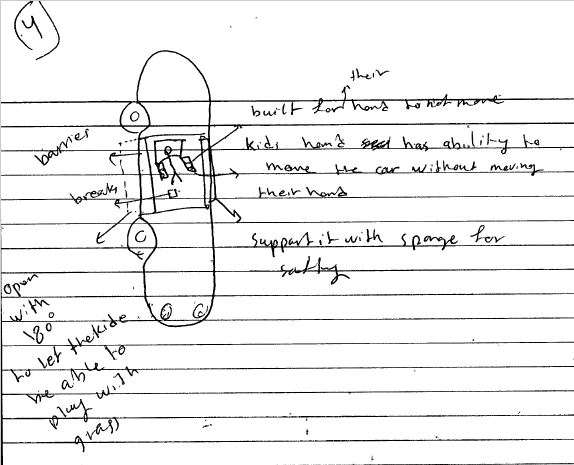 4
their
built for hand to not move
barrier
kids hand has ability to
move the car without moving
their hand
breaks
support it with sponge for
safty
open
with
180°
to let the kide
be able to
play with
grass